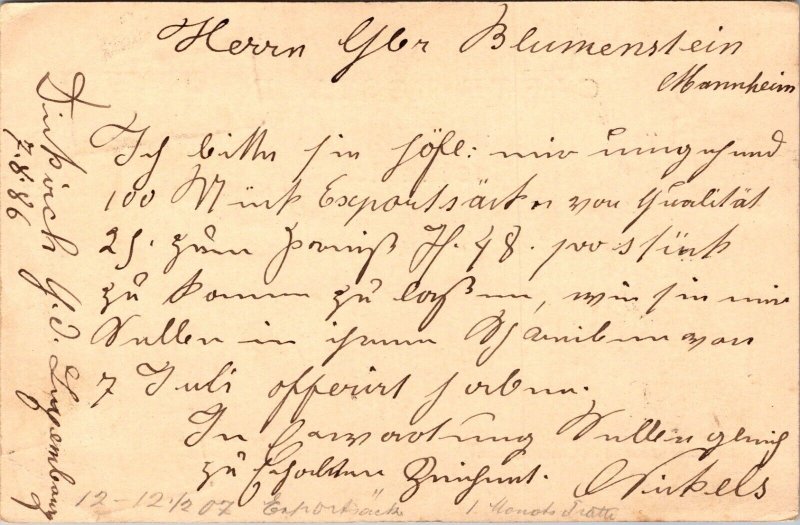 Herrn Gbr Blumenstein
Mannheim
Diekirch G.d. Luxembourg
7.8.86
Ich bitte sie höfl: mir umgehend
100 Stück Exportsäcke von Qualität
25. zum Preiß Pf. 48. pro stück
zu kommen zu laßen, wie sie mir
Selben in ihrem Schreiben von
7 Juli offerirt haben.
In Erwartung Selben gleich
zu Erhalten Zeichnet. Nickels
12-12 1/2 07 Exportsäcke 1. Monats Tratte